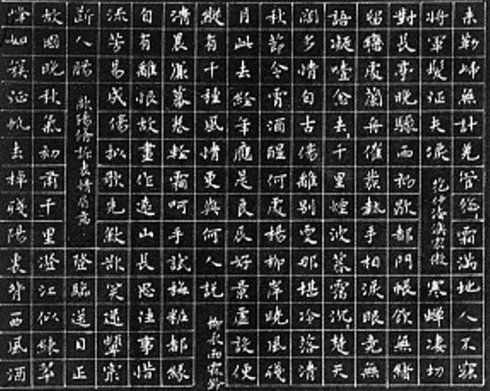 未勒歸無計羌管悠悠霜滿地人不寐
將軍髮征夫淚 范仲淹漁家傲 寒蟬淒切
對長亭晚驟雨初歇都門帳飲無緒
留戀處蘭舟催發執手相看淚眼竟無
語凝噎念去去千里煙波暮靄沉沉楚天
闊多情自古傷離別更那堪冷落清
秋節今宵酒醒何處楊柳岸曉風殘
月此去經年應是良辰好景虛設便
縱有千種風情更與何人說 柳永雨霖鈴
清晨簾幕卷輕霜呵手試梅粧都緣
自有離恨故畫作遠山長思往事惜
流芳易成傷擬歌先斂欲笑還顰最
斷人腸 歐陽修訴衷情眉意 登臨送目正
故國晚秋氣初肅千里澄江似練翠
峰如簇征帆去棹殘陽裏背西風酒